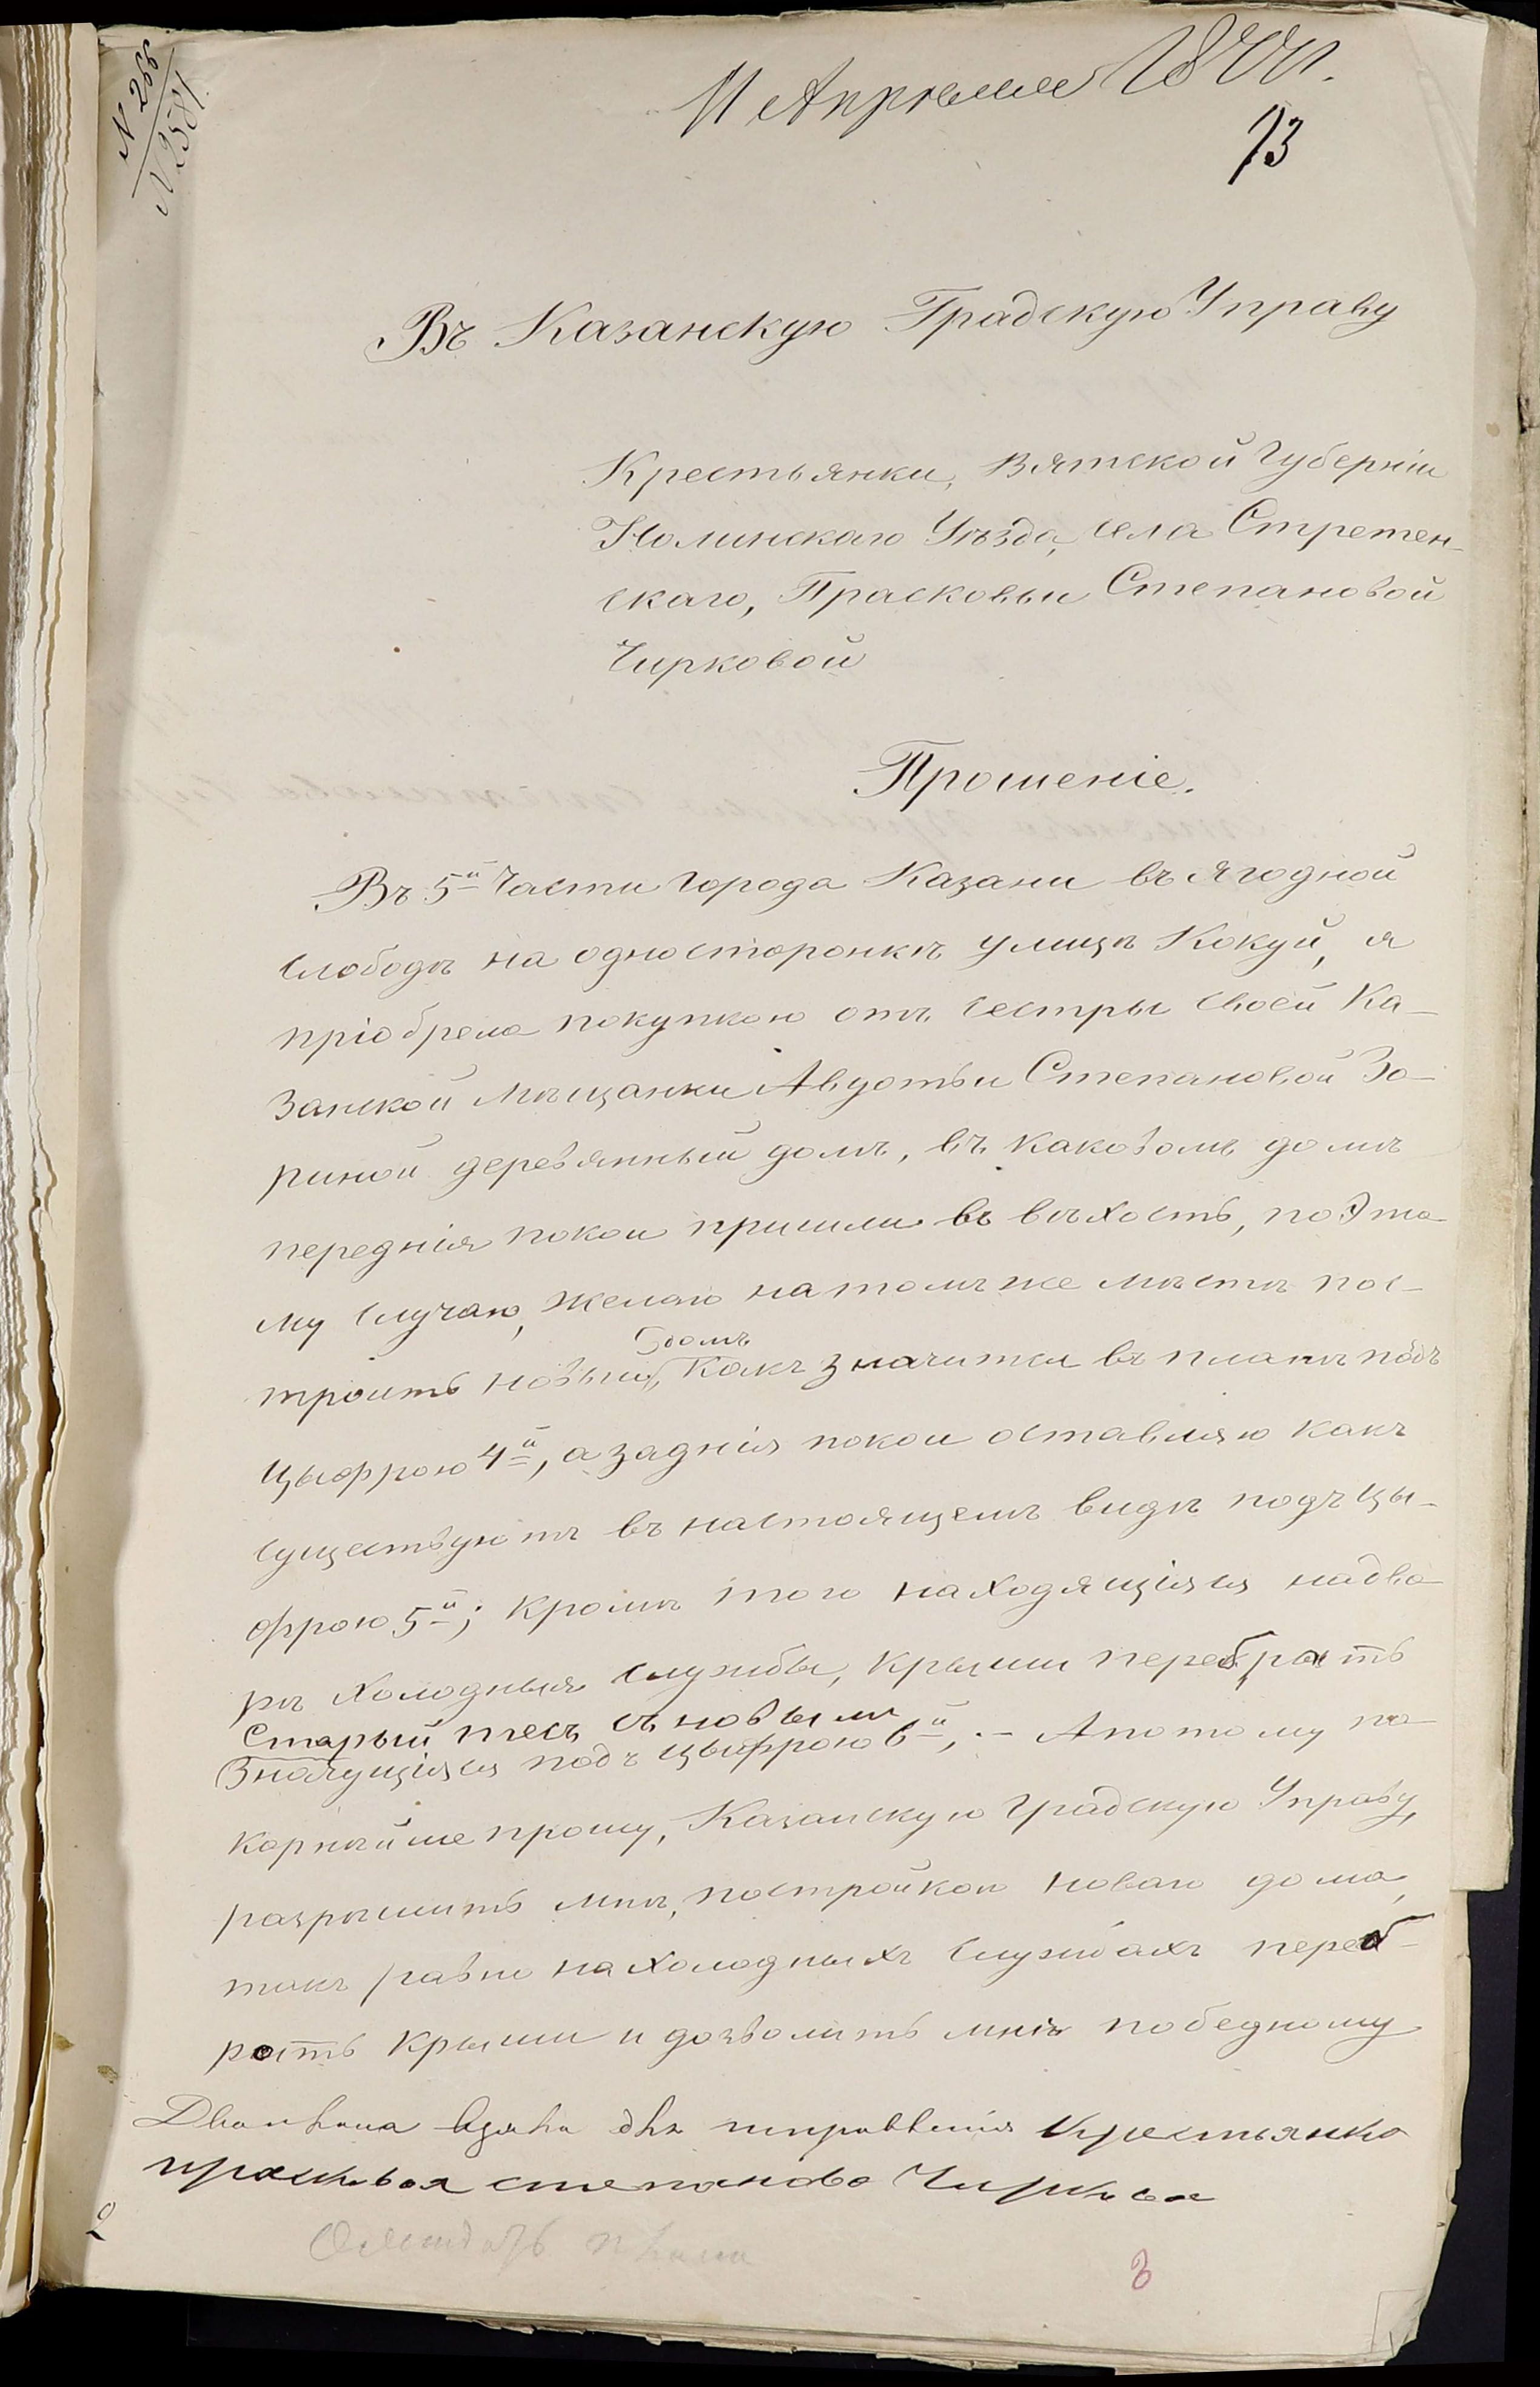 N 266
N 2581.
11 Апреля 1877.
73
Въ Казанскую Градскую Управу
Крестьянки, Вятской Губерніи
Нолинскаго Уѣзда, села Стретен-
скаго, Прасковьи Степановой
Чирковой
Прошеніе.
Въ 5й части города Казани въ Ягодной
слободѣ на односторонкѣ улицѣ Кокуй, я
пріобрела покупкою отъ сестры своей Ка-
занской Мѣщанки Авдотьи Степановой Зо-
риной деревянный домъ, въ каковомъ домѣ
переднія покои пришли въ вѣхость, поэто-
му случаю, желаю на томъ же мѣстѣ пос-
домъ
троить новый, какъ значится въ планѣ подъ
цыфрою 4й, а заднія покои оставляю какъ
существуютъ въ настоящемъ видѣ подъ цы-
фрою 5й; кромѣ того находящіяся надво-
рѣ холодныя службы, крыши перебрать
Старый тесъ съ новымъ
Значущіяся подъ цыфрою 6й, .- А потому по-
корнѣйше прошу, Казанскую Градскую Управу,
разрѣшить мнѣ, постройкою новаго дома,
такъ равно на холодныхъ службахъ переб-
рать крыши и дозволить мнѣ победному
Два плана взяла для исправленія Крестьянка
прасковья степанова Чиркова
2
3